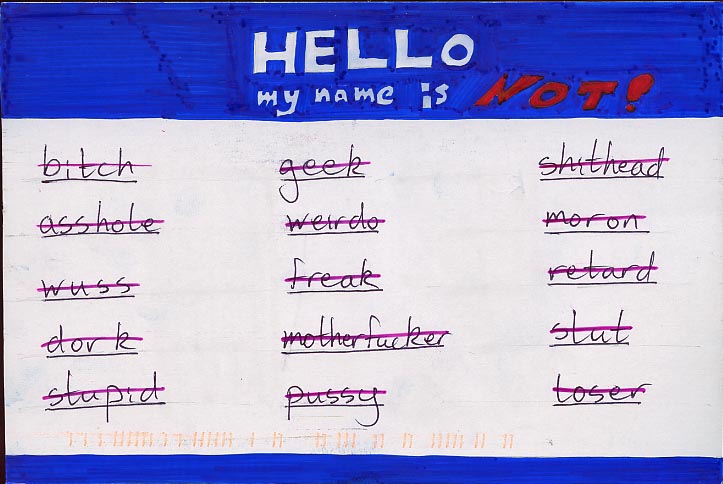 HELLO
my name is NOT!
bitch geek shithead
asshole weirdo moron
wuss freak retard
dork motherfucker slut
stupid pussy loser